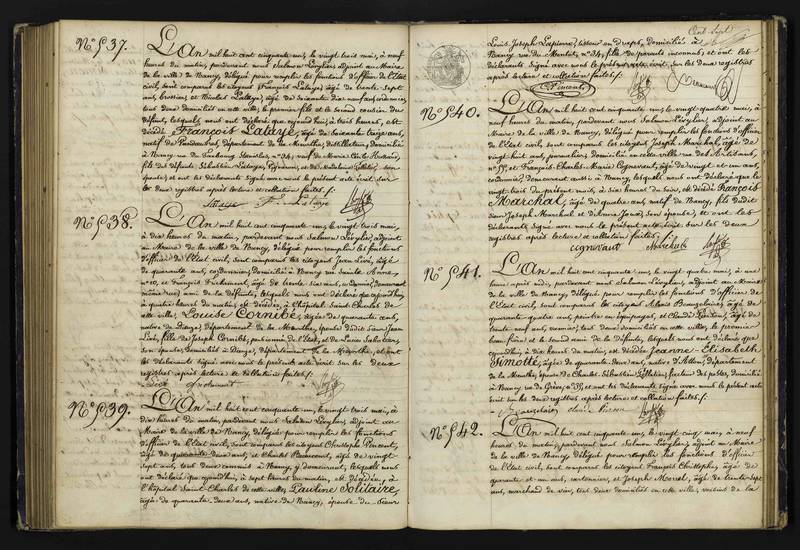 N° 537.
L'An mil huit cent cinquante un, le vingt trois mai, à neuf
heures du matin, pardevant nous Salmon Lévylier, adjoint au Maire
de la ville de Nancy, délégué pour remplir les fonctions d'officier de l'Etat
civil, sont comparus les citoyens François Lataye, âgé de trente sept
ans, brossier, et Nicolas Lataye, âgé de soixante dix neuf ans,
tous deux domiciliés en cette ville, le premier fils et le second cousin du
défunt, lesquels nous ont déclaré que aujourd'hui, à trois heures, est
décédé François Lataye, âgé de soixante treize ans,
natif de département de la Meurthe, distillateur, domicilié
à Nancy rue du faubourg Stanislas, n° 34, veuf de Marie
fils des défunts Sébastien Lataye, et de
et ont les déclarants signé avec nous le présent acte écrit sur
les deux registres après lecture et collation faites ./.
Lataye F. Lataye
N° 538.
L'An mil huit cent cinquante un, le vingt trois mai,
à dix heures du matin, pardevant nous Salmon Lévylier, adjoint
au Maire de la ville de Nancy, délégué pour remplir les fonctions
d'officier de l'Etat civil, sont comparus les citoyens Jean Livé, âgé
de quarante ans, cordonnier, domicilié à Nancy rue Sainte Anne,
n° 10, et François âgé de trente six ans, demeurant
même rue, ami de la défunte, lesquels nous ont déclaré que aujourd'hui
à quatre heures du matin, est décédée, à l'hôpital Saint Charles de
cette ville, Louise Cornibé, âgée de quarante ans,
native de Dieuze, département de la Meurthe, épouse du dit sieur Jean
Livé, fille de Joseph Cornibé, pensionné de l'Etat, et de Louise
son épouse, domiciliés à Dieuze, département de la Meurthe, et ont
les déclarants signé avec nous le présent acte écrit sur les deux
registres après lecture et collation faites ./.
Livé
N° 539.
L'An mil huit cent cinquante un, le vingt trois mai, à
dix heures du matin, pardevant nous Salmon Lévylier, adjoint au
Maire de la ville de Nancy, délégué pour remplir les fonctions
d'officier de l'Etat civil, sont comparus les citoyens Christophe
âgé de quarante deux ans, et Charles âgé de vingt
sept ans, tous deux commis à Nancy, y demeurant, lesquels nous
ont déclaré que aujourd'hui, à sept heures du matin, est décédée, à
l'hôpital Saint Charles de cette ville, Pauline Solitaire,
âgée de quarante deux ans, native de Nancy, épouse du sieur
Cent sept
Louis Joseph Lapierre, tisseur en draps, domiciliée à
Nancy rue du n° 34, fille de parents inconnus, et ont les
déclarants signé avec nous le présent acte écrit sur les deux registres
après lecture et collation faites ./.
N° 540.
L'An mil huit cent cinquante un, le vingt quatre mai, à
neuf heures du matin, pardevant nous Salmon Lévylier, adjoint au
Maire de la ville de Nancy, délégué pour remplir les fonctions d'officier
de l'Etat civil, sont comparus les citoyens Joseph Marchal, âgé de
vingt huit ans, journalier, domicilié en cette ville rue des Artisans,
n° 55, et François Charles Marie Cognevaut, âgé de vingt et un ans,
demeurant aussi à Nancy, lesquels nous ont déclaré que le
vingt trois du présent mois, à six heures du soir, est décédé François
Marchal, âgé de quatre ans, natif de Nancy, fils du dit
sieur Joseph Marchal et de son épouse, et ont les
déclarants signé avec nous le présent acte écrit sur les deux
registres après lecture et collation faites ./.
cognevaut Marchal
N° 541.
L'An mil huit cent cinquante un, le vingt quatre mai, à une
heure après midi, pardevant nous Salmon Lévylier, adjoint au Maire
de la ville de Nancy, délégué pour remplir les fonctions d'officier de
l'Etat civil, sont comparus les citoyens Alexis âgé de
quarante quatre ans, peintre en équipages, et Claude âgé de
trente neuf ans, tous deux domiciliés en cette ville, le premier
beau frère et le second ami de la défunte, lesquels nous ont déclaré que
aujourd'hui, à dix heures du matin, est décédée Jeanne-Elisabeth
Simotté, âgée de quarante deux ans, native d'Allain, département
de la Meurthe, épouse de Charles Sébastien Pelletier, facteur des postes, domiciliée
à Nancy rue de Grève, n° 37, et ont les déclarants signé avec nous le présent acte
écrit sur les deux registres après lecture et collation faites ./.
N° 542.
L'An mil huit cent cinquante un, le vingt cinq mai, à neuf
heures du matin, pardevant nous Salmon Lévylier, adjoint au Maire
de la ville de Nancy, délégué pour remplir les fonctions d'officier
de l'Etat civil, sont comparus les citoyens François Christophe, âgé de
quarante et un ans, cartonnier, et Joseph Morel, âgé de trente sept
ans, marchand de vin, tous deux domiciliés en cette ville, voisins de la